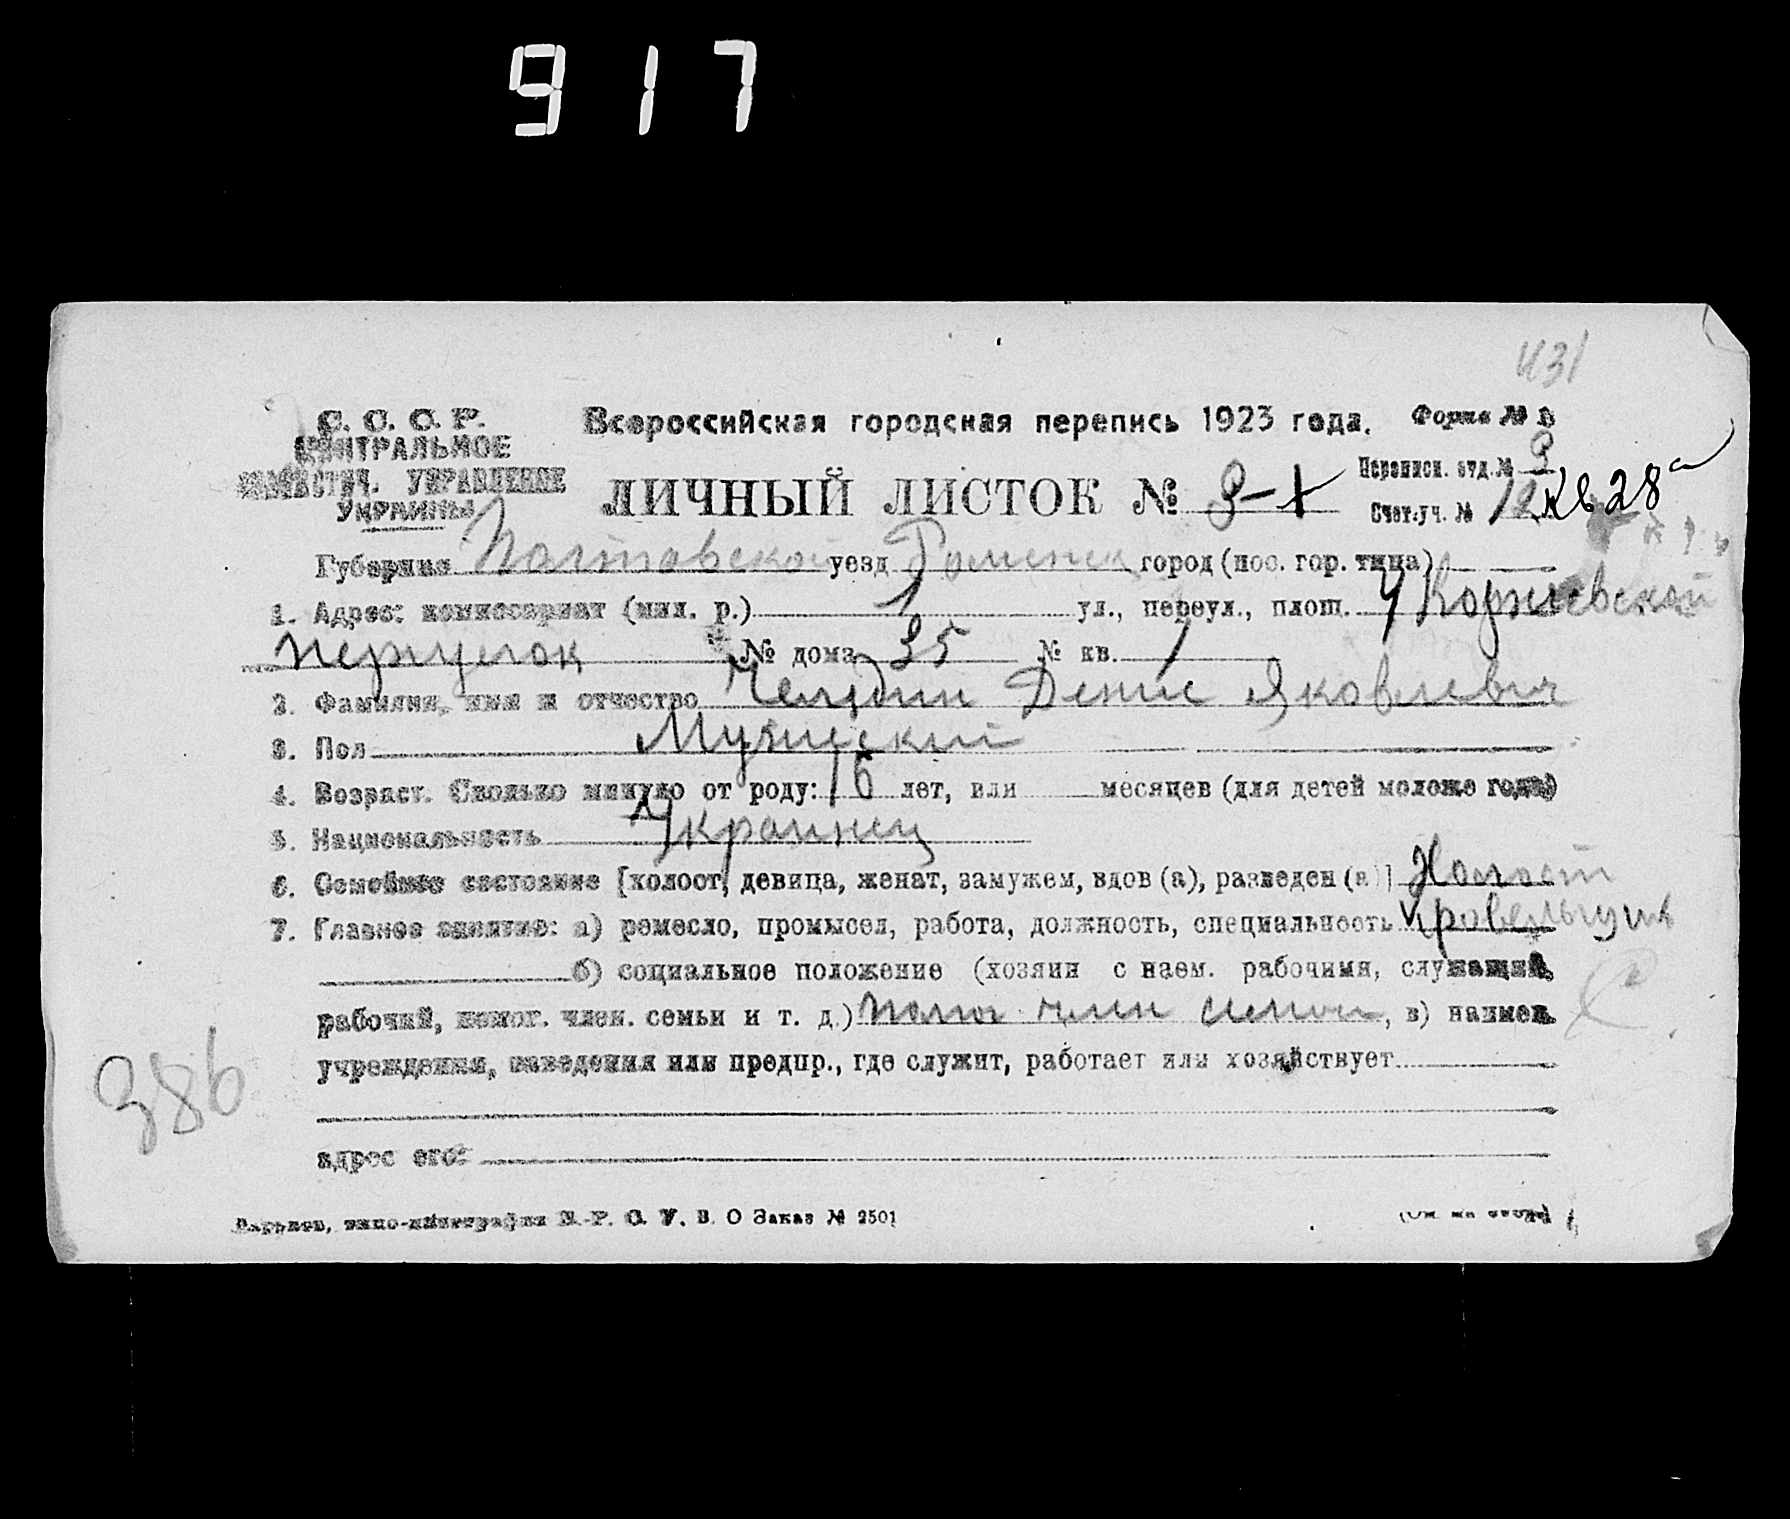 917
431
С. С. С. Р.
ЦЕНТРАЛЬНОЕ
СТАТИСТИЧ. УПРАВЛЕНИЕ
УКРАИНЫ
Всероссийская городская перепись 1923 года.
Форма № В
ЛИЧНЫЙ ЛИСТОК №
Переписн. отд. № 3
Счет.уч. № 12 кв 28а
Губерния Полтавской уезд Роменск город (пос. гор. типа)
1. Адрес: комиссариат (мил. р.) 1 ул., переул., площ. Коржевской
переулок № дома 35 № кв. 1
2. Фамилия, имя и отчество Денис Яковлевич
3. Пол Мужеский
4. Возраст. Сколько минуло от роду: 16 лет, или месяцев (для детей моложе года)
5. Национальность Украинец
6. Семейное состояние [холост, девица, женат, замужем, вдов (а), разведен (а)] Холост
7. Главное занятие: а) ремесло, промысел, работа, должность, специальность Кровельщик
б) социальное положение (хозяин с наем. рабочими, служащий,
рабочий, помог. член. семьи и т. д.) помог член семьи, в) наимен.
учреждения, заведения или предпр., где служит, работает или хозяйствует
адрес его:
386
Харьков, типо-литография В. О Заказ № 2501